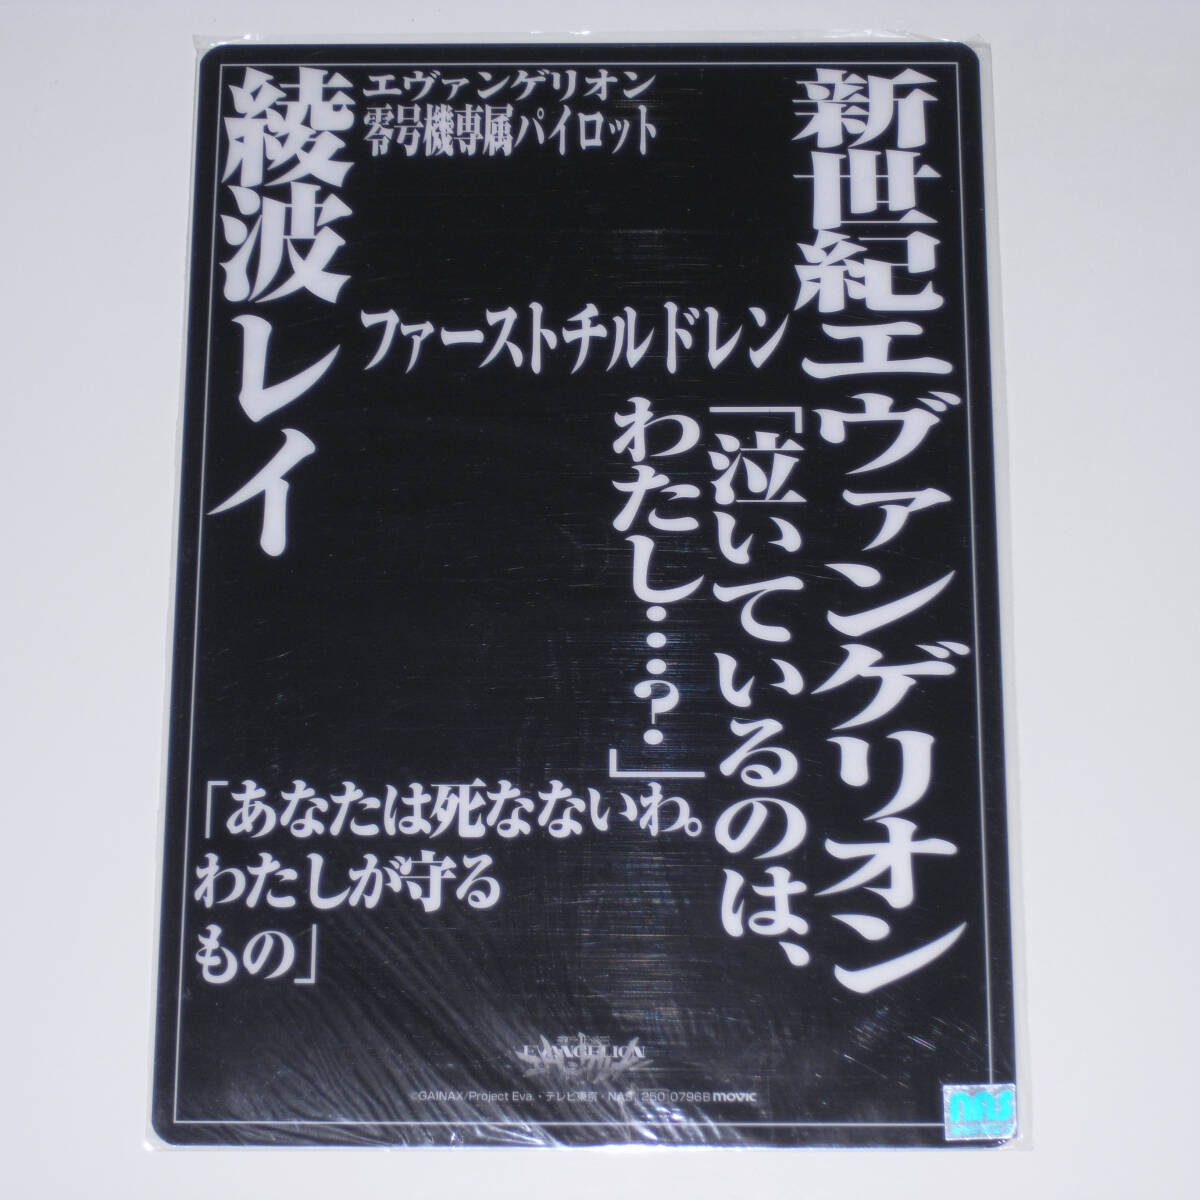 新世紀エヴァンゲリオン
「泣いているのは、
わたし……?」
ファーストチルドレン
エヴァンゲリオン
零号機専属パイロット
綾波レイ
「あなたは死なないわ。
わたしが守る
もの」
EVANGELION
©GAINAX/Project Eva.・テレビ東京・NAS 250 0796B movic
NAS